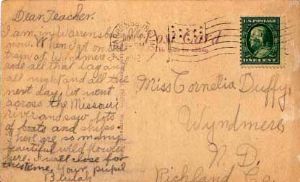 Dear Teacher.
I am in Warrensburg
now. When I got on the
train at Wyndmere I
rode all that day and
all night and all the
next day. We went
across the Missouri
river and saw lots
of boats and ships.
There are so many
beautiful wild flowers
here. I will close for
this time. Your pupil
Beulah
Post Card
U.S. POSTAGE
ONE CENT
Miss Cornelia Duffy,
Wyndmere
N.D.
Richland Co.